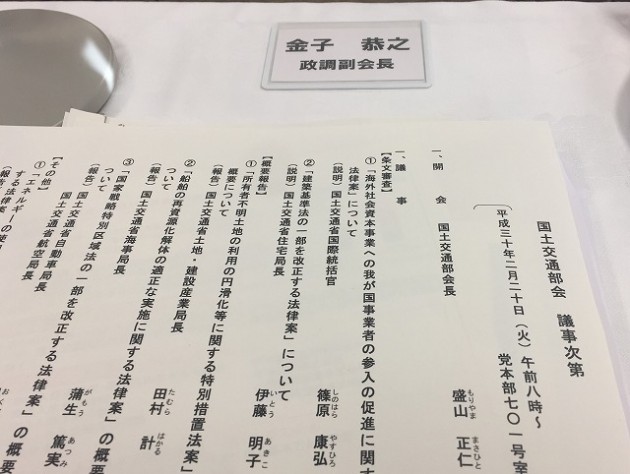 金子　恭之
政調副会長
国土交通部会　議事次第
平成三十年二月二十日（火）午前八時～
党本部七〇一号室
一、開　会　国土交通部会長　盛山　正仁
もりやま　まさひと
一、議　事
【条文審査】
①「海外社会資本事業への我が国事業者の参入の促進に関す
法律案」について
（説明）国土交通省国際統括官　篠原　康弘
しのはら　やすひろ
②「建築基準法の一部を改正する法律案」について
（説明）国土交通省住宅局長　伊藤　明子
いとう　あきこ
【概要報告】
①「所有者不明土地の利用の円滑化等に関する特別措置法案」
概要について
（報告）国土交通省土地・建設産業局長　田村　計
たむら　はかる
②「船舶の再資源化解体の適正な実施に関する法律案」の概要
ついて
（報告）国土交通省海事局長　蒲生　篤実
がもう　あつみ
③「国家戦略特別区域法の一部を改正する法律案」の概要
ついて
（報告）国土交通省自動車局長
国土交通省航空局長
【その他】
①「エネルギ
する法律案」の